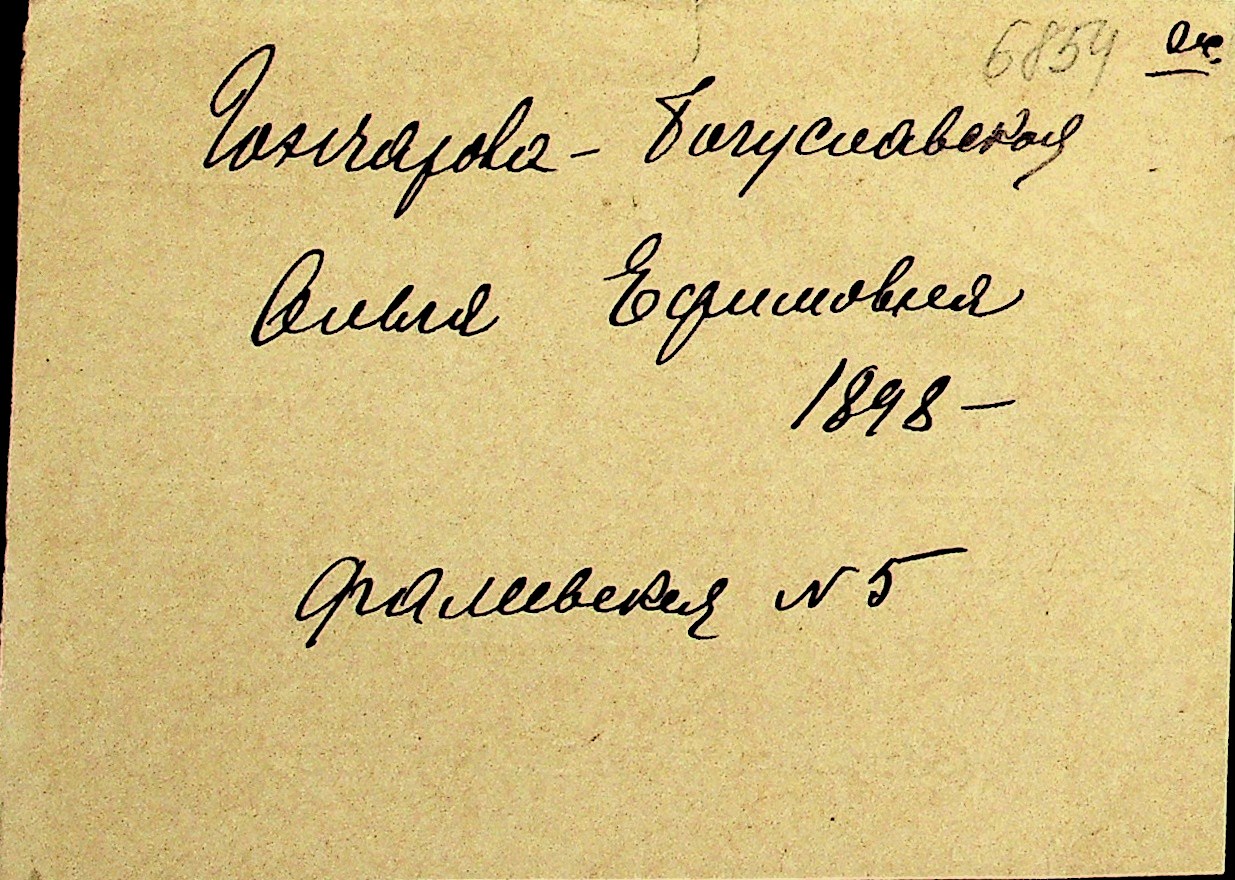 6854
Гончарова - Богуславская
Ольга Ефимовна
1898 -
Фалеевская N 5